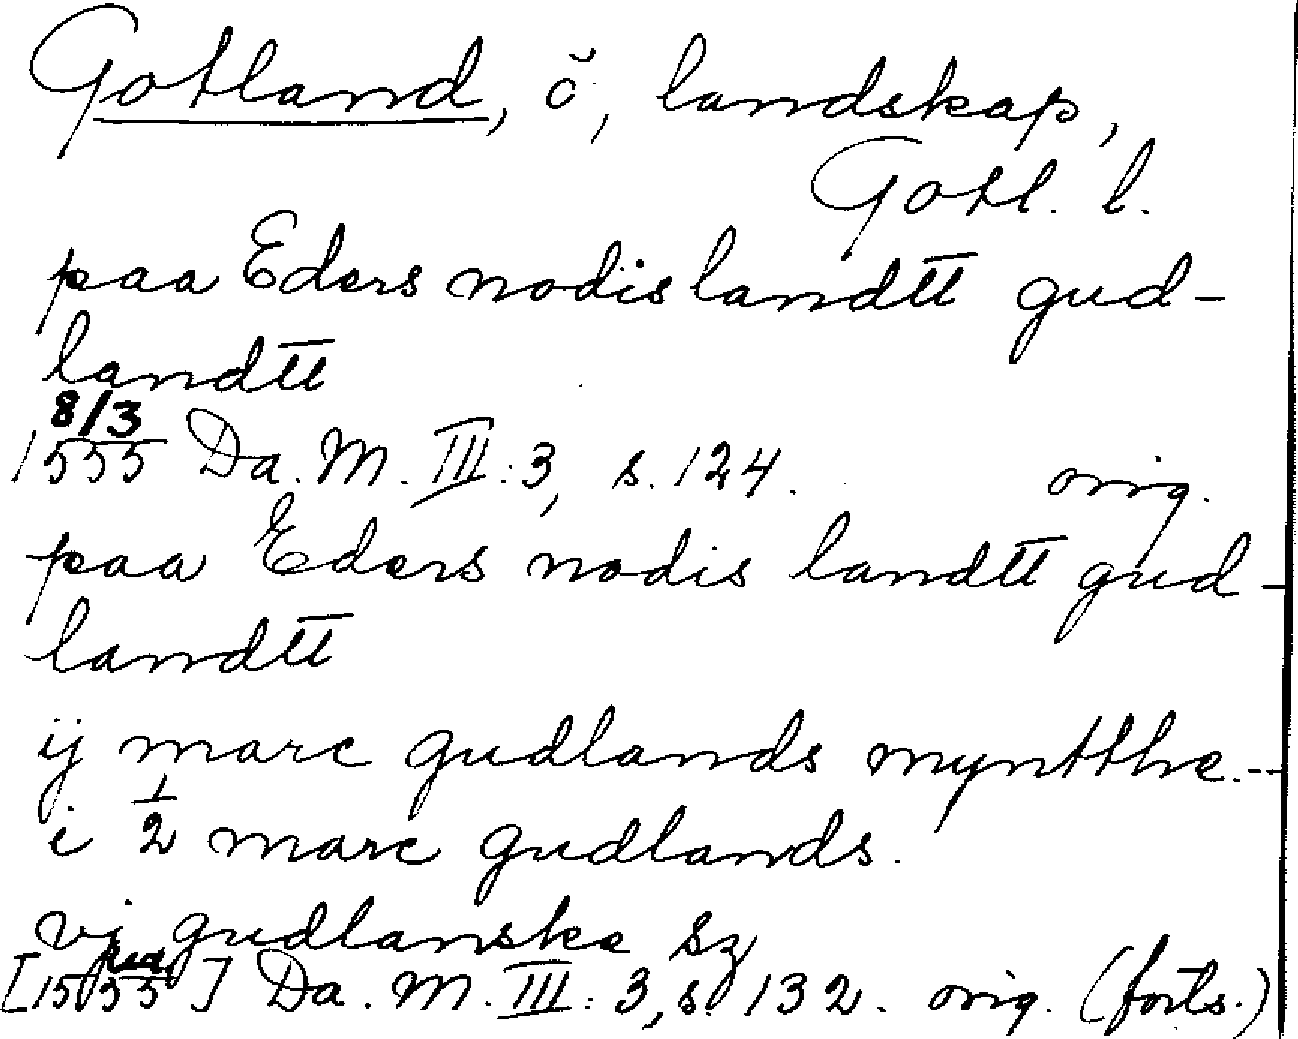 Gotland, ö, landskap,
Gotl. l.
paa Eders nodis landtt gud-
landtt
8/3
1555 Da. M. III: 3, s. 124. orig.
paa Eders nodis landtt gud-
landtt
ij marc gudlands myntthe.--
i 1/2 marc gudlands.
vj gudlanske sz
[1555] Da. M. III: 3, s. 132. orig. (forts.)